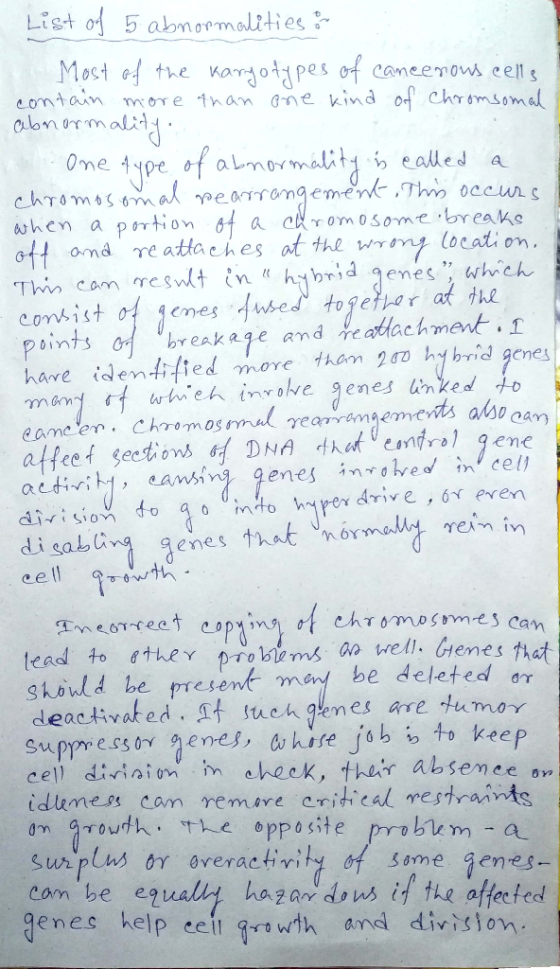 List of 5 abnormalities :-
Most of the karyotypes of canceerous cells
contain more than one kind of chromsomal
abnormality.
One type of abnormality is called a
chromosomal rearrangement. This occurs
when a portion of a chromosome breaks
off and reattaches at the wrong location.
This can result in "hybrid genes", which
consist of genes fused together at the
points of breakage and reattachment. I
have identified more than 200 hybrid genes
many of which involve genes linked to
cancer. Chromosomal rearrangements also can
affect sections of DNA that control gene
activity, causing genes involved in cell
division to go into hyperdrive, or even
disabling genes that normally rein in
cell growth.
Incorrect copying of chromosomes can
lead to other problems as well. Genes that
should be present may be deleted or
deactivated. If such genes are tumor
suppressor genes, whose job is to keep
cell division in check, their absence or
idleness can remove critical restraints
on growth. The opposite problem - a
surplus or overactivity of some genes-
can be equally hazardous if the affected
genes help cell growth and division.